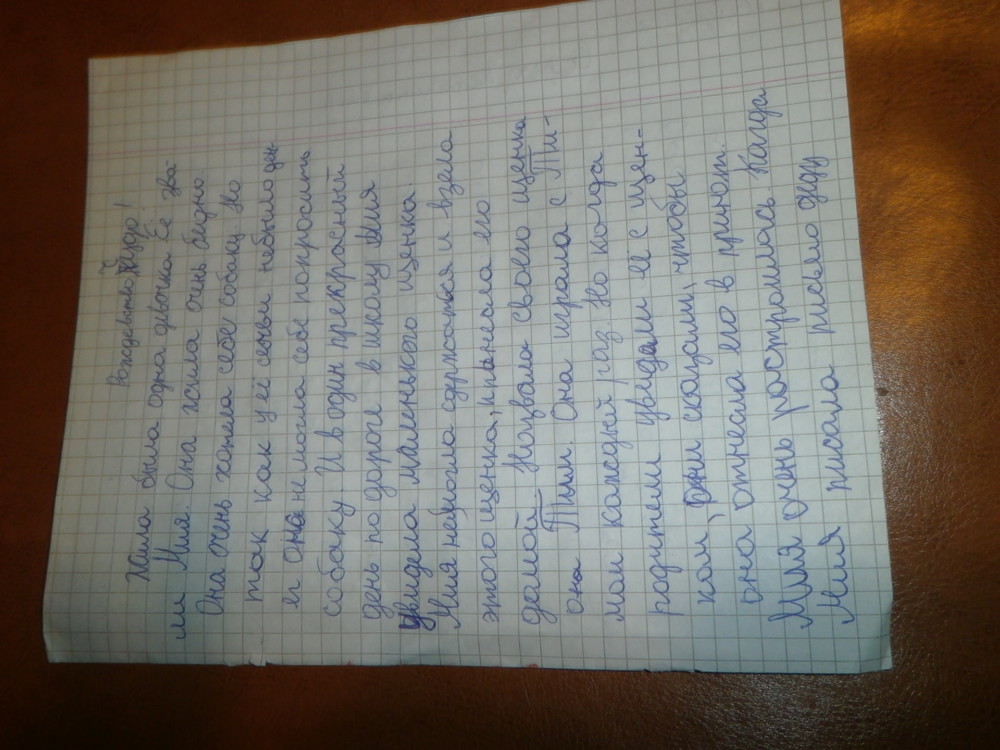 Рождевство Чудо!
Жила была одна девочка Её зва-
ли Мия. Она жила очень бидно.
Она очень хотела себе собаку. Но
так как у её семьи небыло ден
ег она немогла себе попросить
собаку. И в один прекрасный
день по дороге в школу Мия
увидела маленького щенка
Мия немогла сдержатся и взела
этого щенка, принесла его
домой. Нозвала своего щенка
она Тими. Она играла с Ти-
ми каждый раз. Но когда
родители увидели её с щен-
ком, они сказали, чтобы
она отнесла его в приют.
Мия очень растроилась. Когда
Мия писала письмо деду